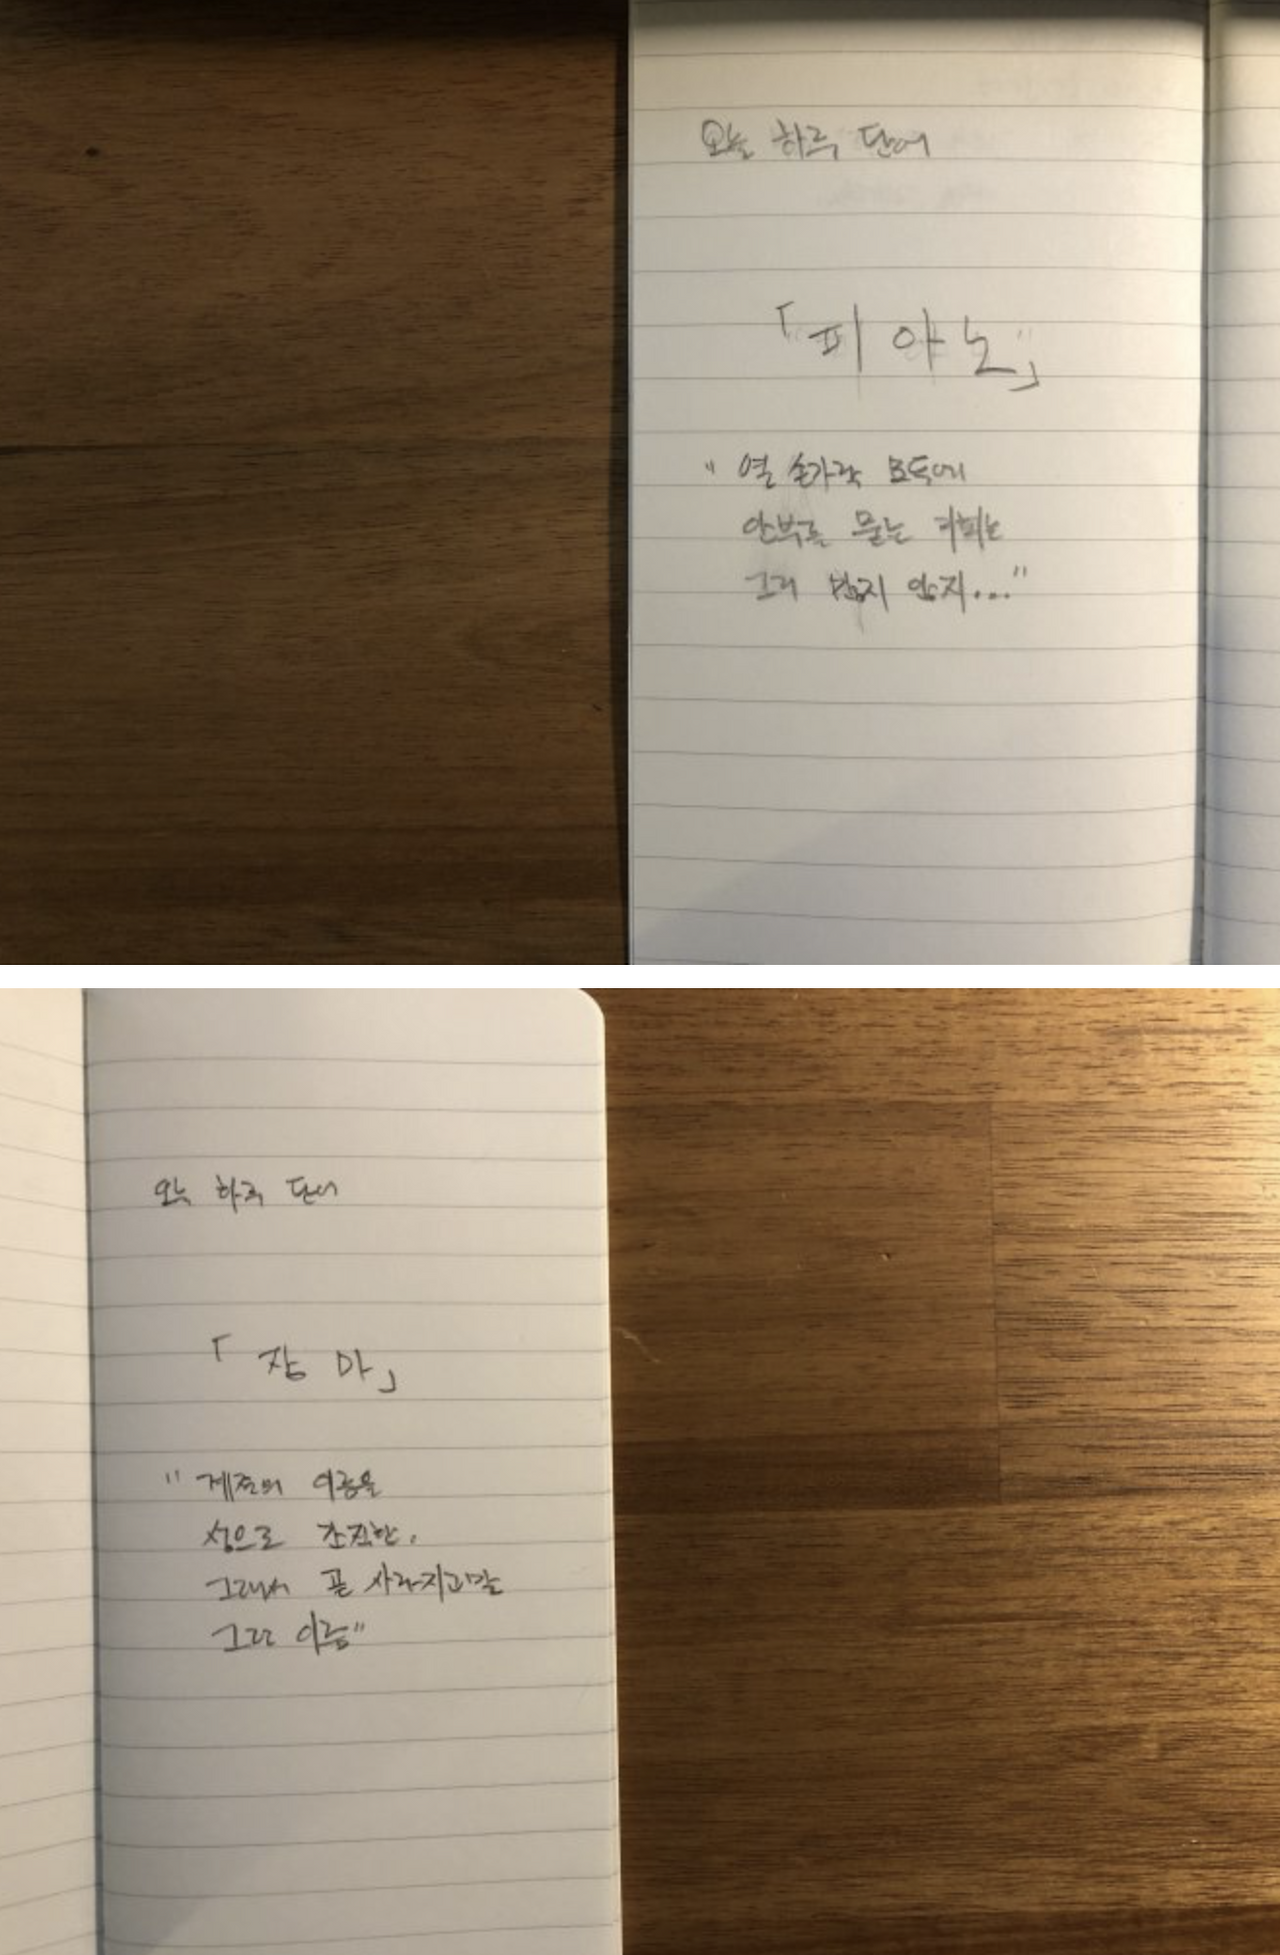 오늘 하루 단어
「피아노」
" 열 손가락 모두에
안부를 묻는 커피는
그리 많지 않지..."
오늘 하루 단어
「장마」
" 계절의 이름을
성으로 간직한.
그래서 곧 사라지고말
그런 이름"